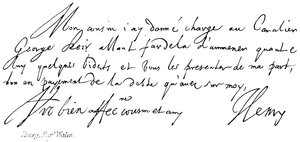 Mon cousin j ay donné charge au Cavalier
George Leir allant par dela d'ammener quant e
luy quelques bidets et vous les presenter de ma part,
bon en payement de la debte qu'avez sur moy,
Vre bien affec.ne cousin et amy Henry